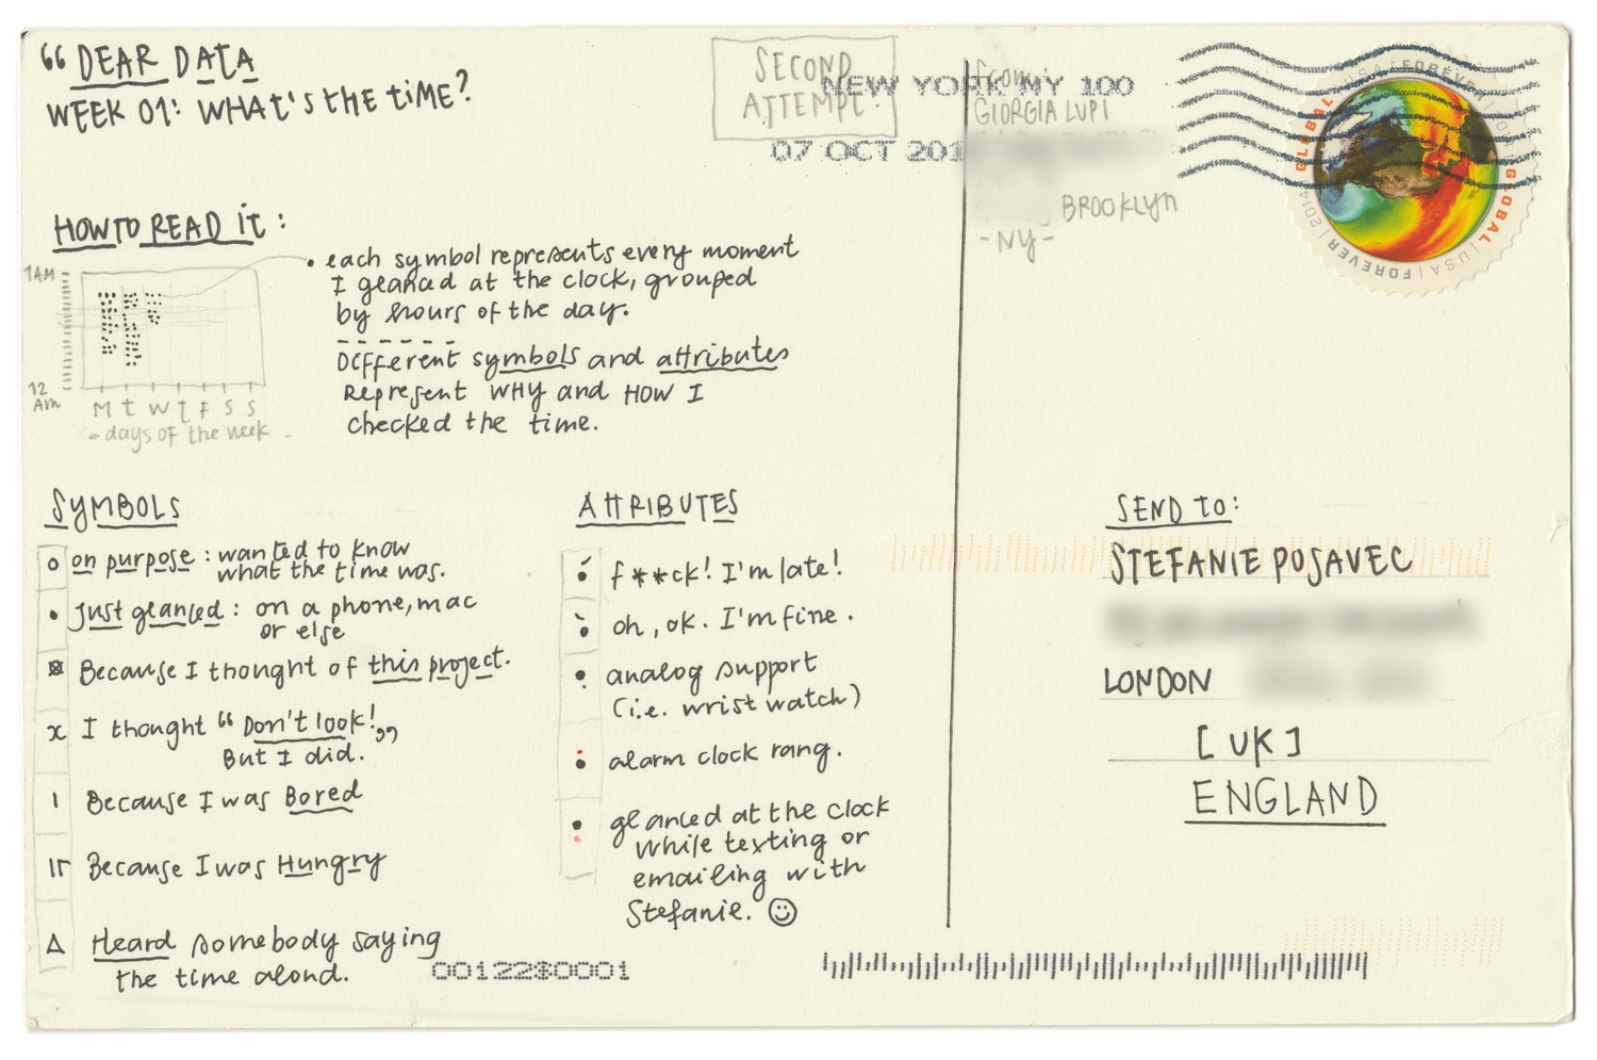 “ DEAR DATA
WEEK 01: WHAT'S THE TIME?
SECOND
ATTEMPT!
NEW YORK NY 100
07 OCT 201
From:
GIORGIA LUPI
BROOKLYN
-NY-
GLOBAL
USA | FOREVER
GLOBAL
USA | FOREVER | 2014
HOW TO READ IT:
1AM
12
AM
M T W T F S S
- days of the week -
• each symbol represents every moment
I glanced at the clock, grouped
by hours of the day.
Different symbols and attributes
Represent WHY and HOW I
checked the time.
SYMBOLS
on purpose: wanted to know
what the time was.
Just glanced: on a phone, mac
or else
Because I thought of this project.
x I thought “Don't look!„
But I did.
Because I was Bored
Because I was Hungry
Heard somebody saying
the time aloud.
ATTRIBUTES
f**ck! I'm late!
oh, ok. I'm fine.
analog support
(i.e. wrist watch)
alarm clock rang.
glanced at the clock
while texting or
emailing with
Stefanie. ☺
SEND TO:
STEFANIE POSAVEC
LONDON
[UK]
ENGLAND
00122$0001